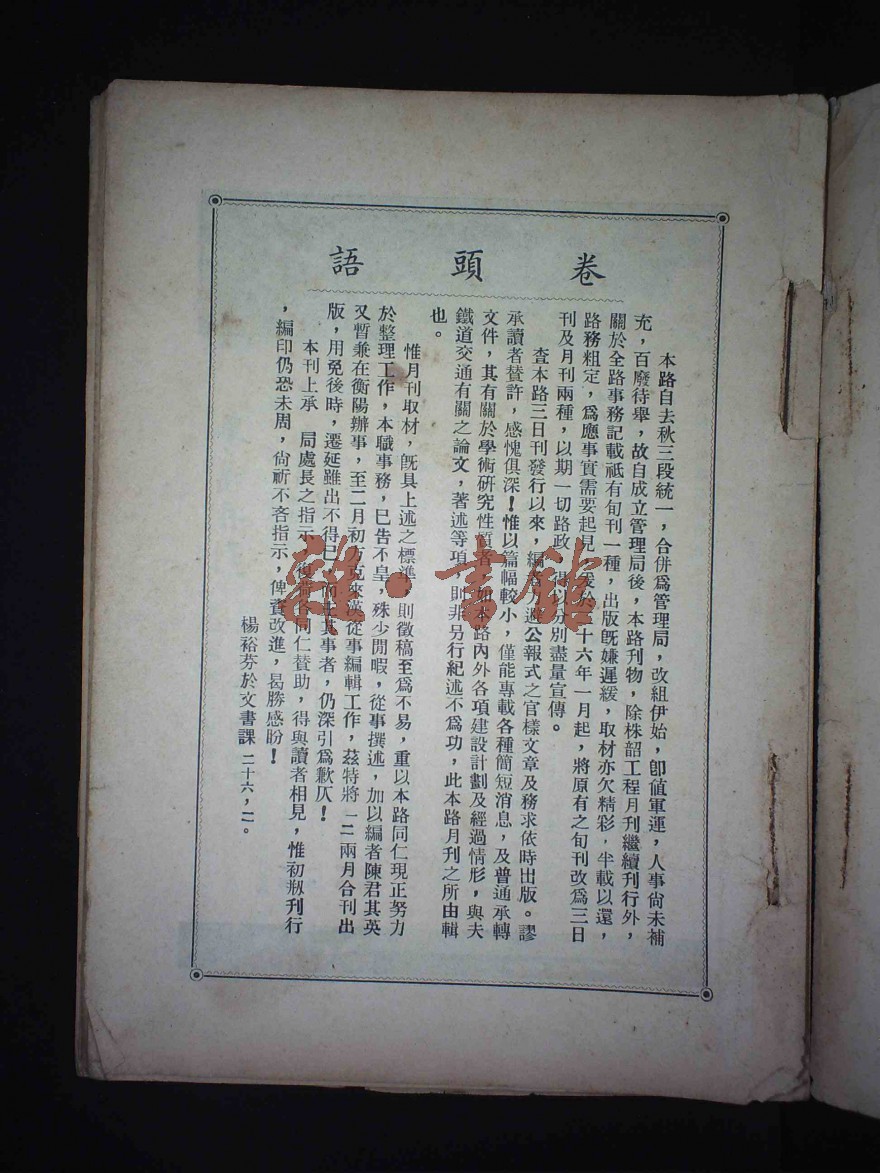 卷頭語
本路自去秋三段統一，合併爲管理局，改組伊始，卽値軍運，人事尙未補
充，百廢待舉，故自成立管理局後，本路刊物，除株韶工程月刊繼續刊行外，
關於全路事務記載祗有旬刊一種，出版旣嫌遲緩，取材亦欠精彩，半載以還，
路務粗定，爲應事實需要起見，爰於十六年一月起，將原有之旬刊改爲三日
刊及月刊兩種，以期一切路政，得以分別盡量宣傳。
查本路三日刊發行以來，編者力避公報式之官樣文章及務求依時出版。謬
承讀者贊許，感愧俱深！惟以篇幅較小，僅能專載各種簡短消息，及普通承轉
文件，其有關於學術研究性質者，如本路內外各項建設計劃及經過情形，與夫
鐵道交通有關之論文，著述等項，則非另行紀述不爲功，此本路月刊之所由輯
也。
惟月刊取材，旣具上述之標準，則徵稿至爲不易，重以本路同仁現正努力
於整理工作，本職事務，已告不皇，殊少閒暇，從事撰述，加以編者陳君其英
又暫兼在衡陽辦事，至二月初方克來漢從事編輯工作，茲特將一二兩月合刊出
版，用免後時，遷延雖出不得已，而主其事者，仍深引爲歉仄！
本刊上承　局處長之指示，復荷各同仁贊助，得與讀者相見，惟初刱刊行
，編印仍恐未周，尙祈不吝指示，俾資改進，曷勝感盼！
楊裕芬於文書課 二十六，二。
雜·書館